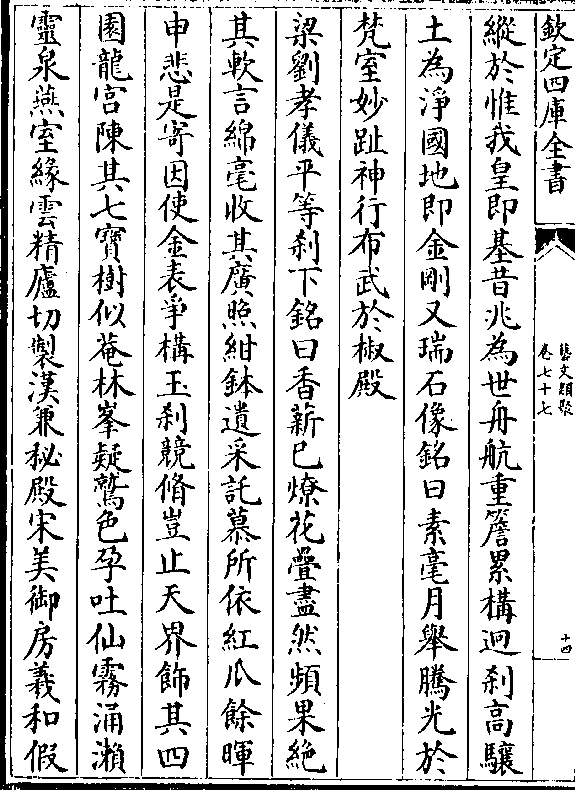 欽定四庫全書
藝文類聚
卷七十七
十四
縱於惟我皇即基昔兆為世舟航重簷累構迥刹高驤
土為淨國地即金剛又瑞石像銘曰素毫月舉騰光於
梵室妙趾神行布武於椒殿
梁劉孝儀平等刹下銘曰香薪已燎花疊盡然頻果絶
其軟言綿毫收其廣照紺鉢遺采託慕所依紅爪餘暉
申悲是寄因使金表爭構玉刹競脩豈止天界飾其四
園龍宮陳其七寶樹似菴林峯疑鷲色孕吐仙霧涌瀨
靈泉燕室緣雲精廬切製漢兼秘殿宋美御房義和假